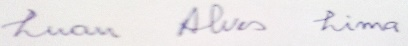 Luan Alves Lima